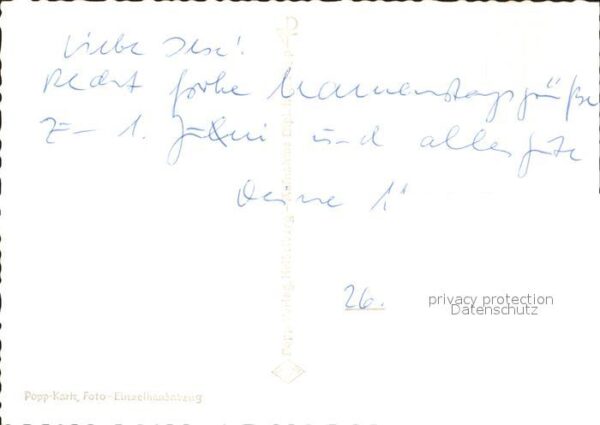 Liebe
Recht frohe Namenstagsgrüße
zum 1. Juni und alles gute
Deine
26.
privacy protection
Datenschutz
Popp-Karte, Foto-Einzelhandabzug
Popp-Verlag, Heidelberg